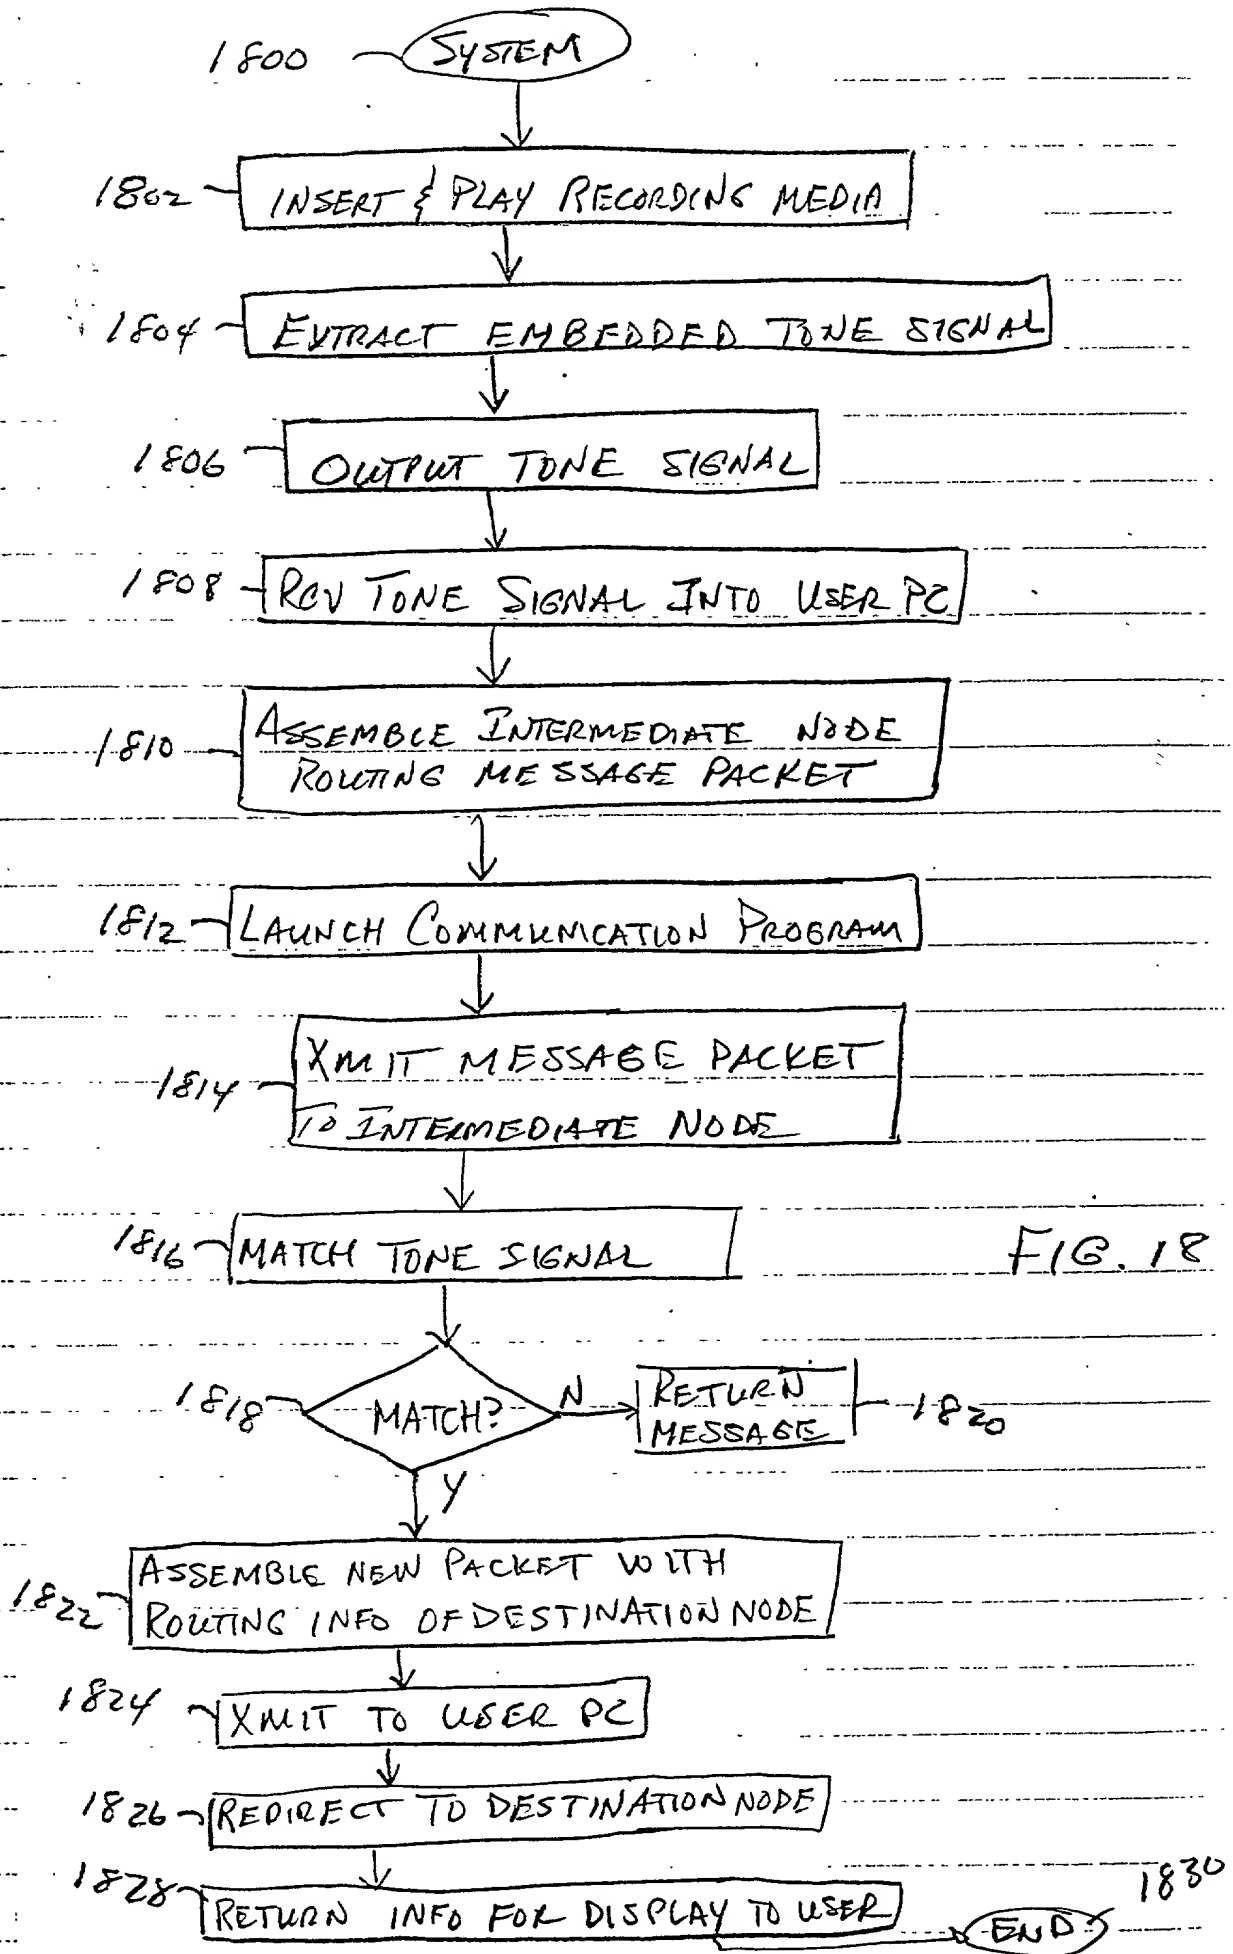 1800 SYSTEM
1802 INSERT & PLAY RECORDING MEDIA
1804 EXTRACT EMBEDDED TONE SIGNAL
1806 OUTPUT TONE SIGNAL
1808 RCV TONE SIGNAL INTO USER PC
1810 ASSEMBLE INTERMEDIATE NODE
ROUTING MESSAGE PACKET
1812 LAUNCH COMMUNICATION PROGRAM
1814 XMIT MESSAGE PACKET
TO INTERMEDIATE NODE
1816 MATCH TONE SIGNAL
FIG. 18
1818 MATCH? N RETURN
MESSAGE 1820
Y
1822 ASSEMBLE NEW PACKET WITH
ROUTING INFO OF DESTINATION NODE
1824 XMIT TO USER PC
1826 REDIRECT TO DESTINATION NODE
1828 RETURN INFO FOR DISPLAY TO USER
END 1830